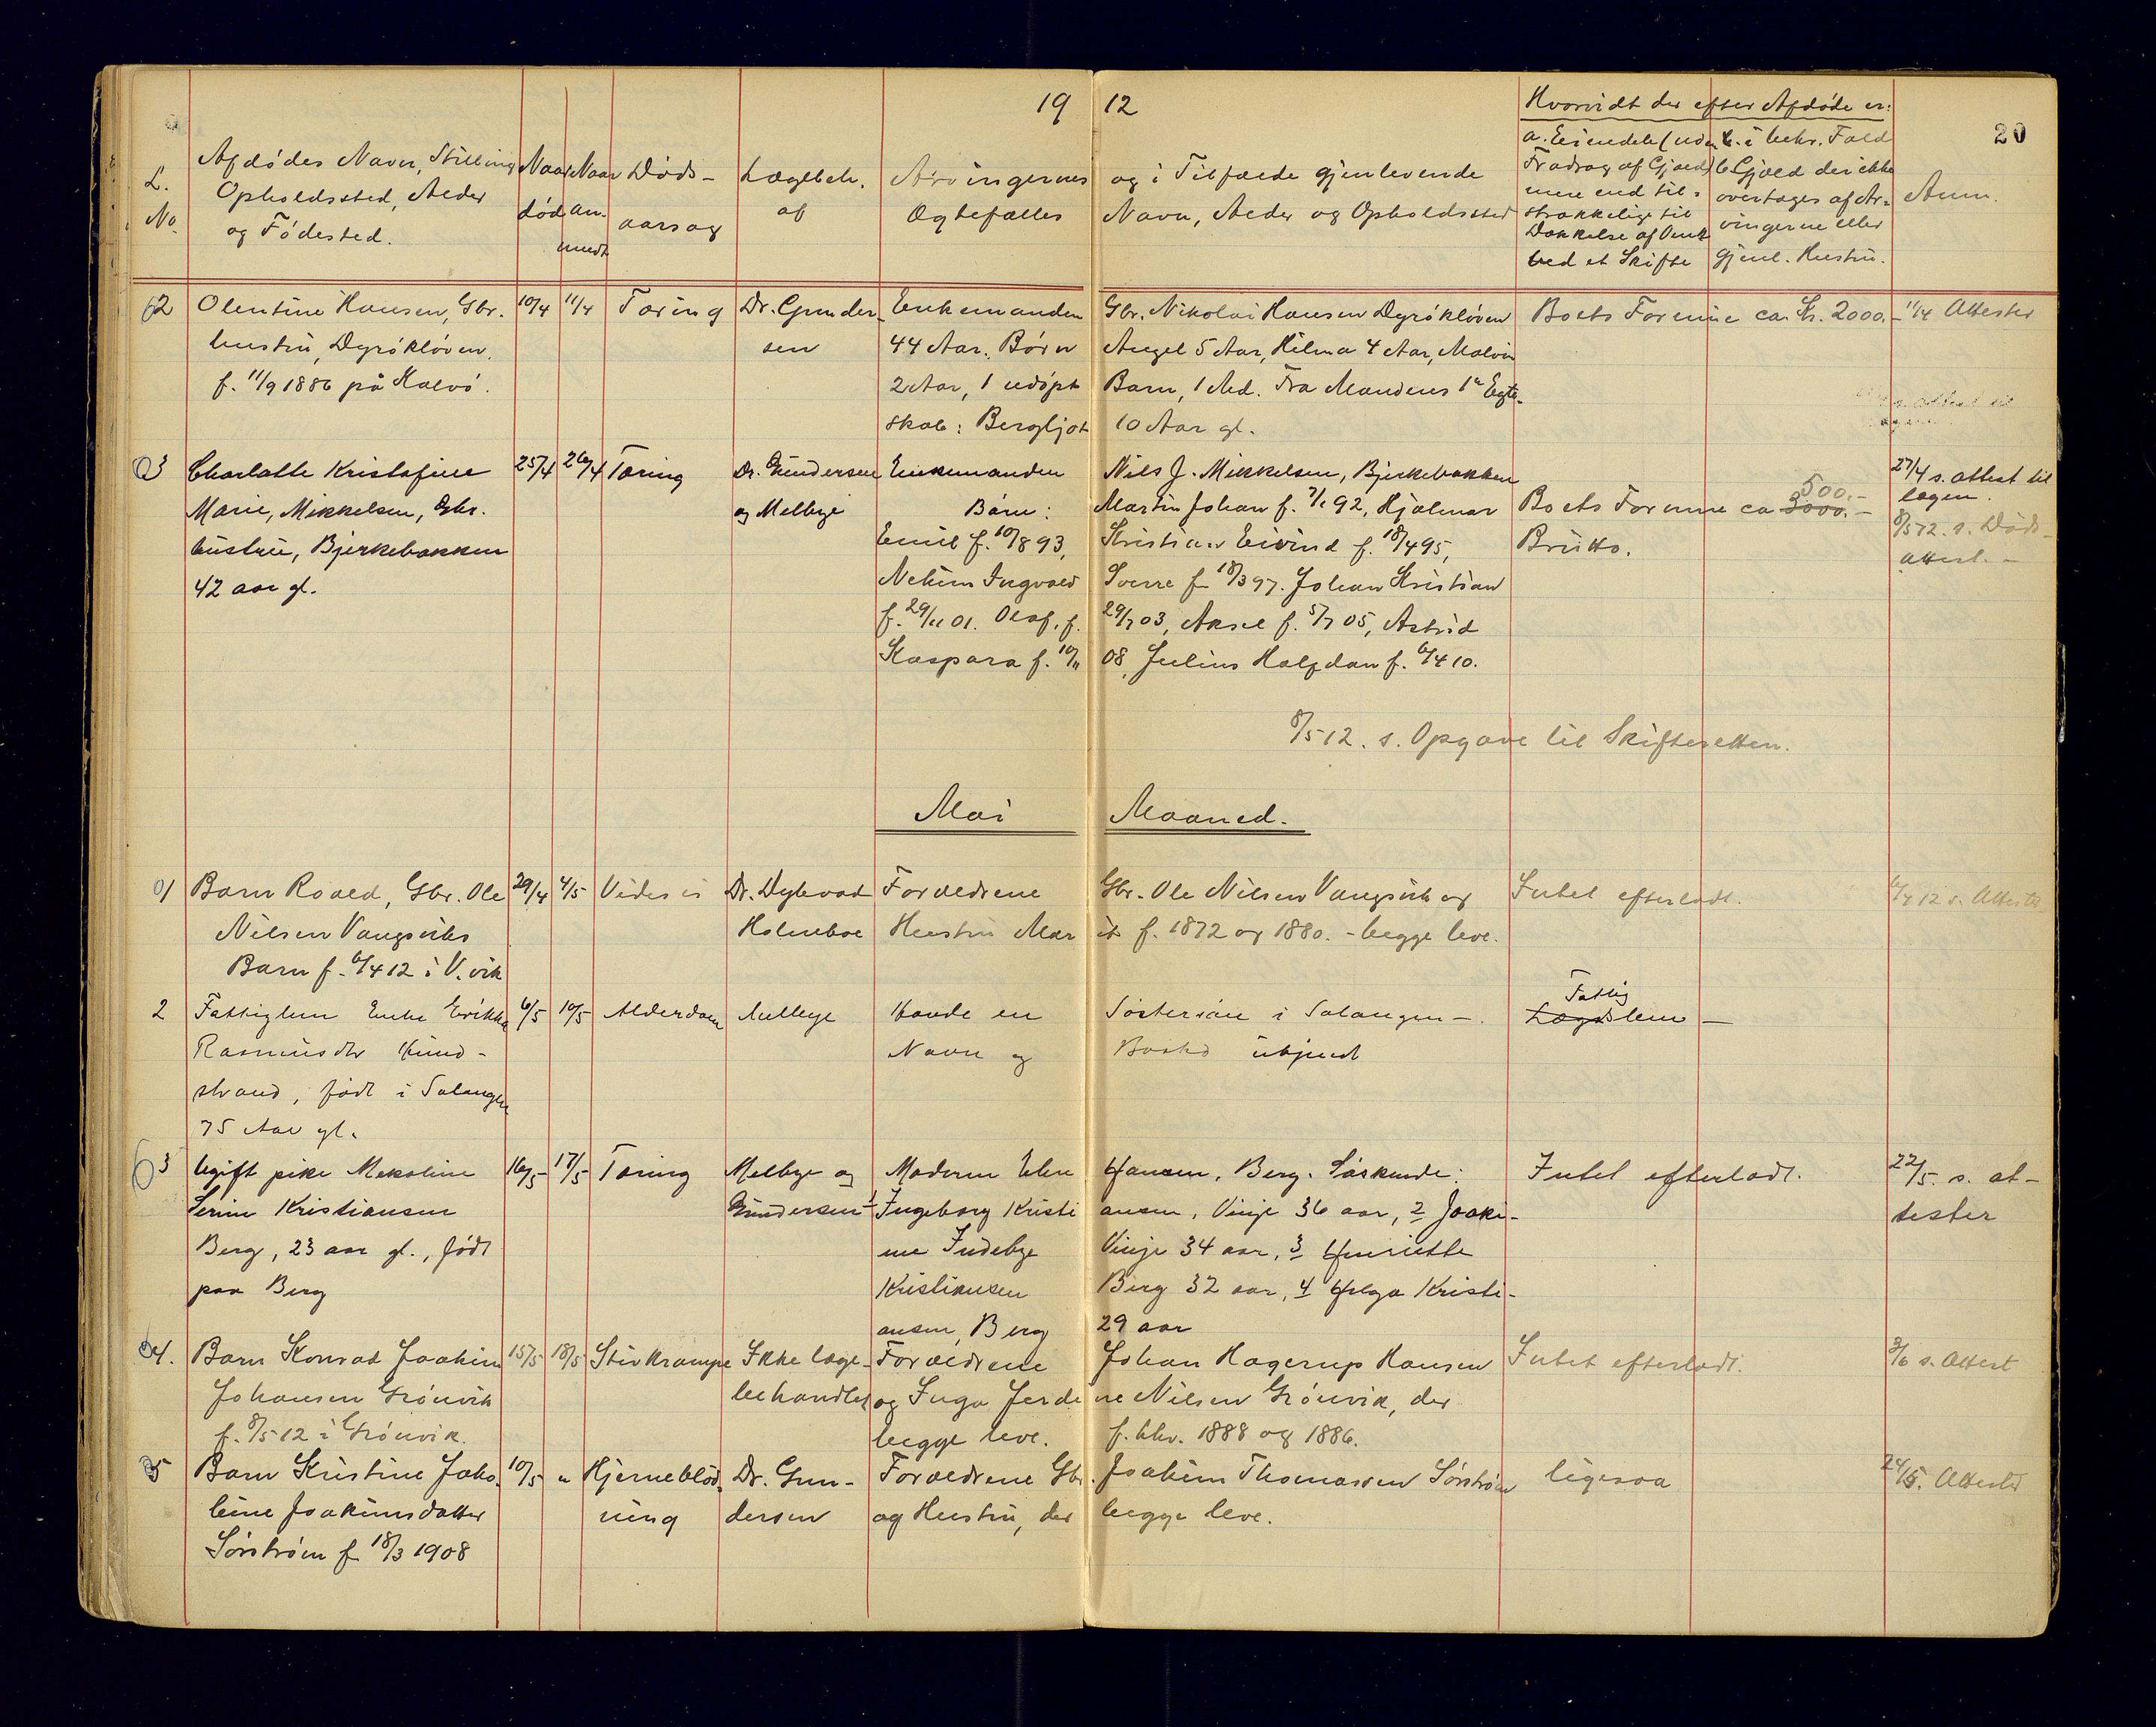 19 12
20
Hvorvidt der efter Afdøde er:
L. No.
Afdødes Navn, Stilling
Opholdssted, Alder
og Fødested.
Naar død
Naar anmeldt
Dødsaarsag
Lægebeh. af
Arvingernes og i Tilfælde gjenlevende
Ægtefælles Navn, Alder og Opholdssted
a. Eiendele (uden
Fradrag af Gjæld)
mere end til-
strækkelige til
Dækkelse af Omk
ved et Skifte
b. i bekr. Fald
Gjæld der ikke
overtages af Ar-
vingerne eller
gjenl. Hustru.
Anm.
2 Olentine Hansen, Gbr. 10/4 11/4 Tæring Dr. Gunder- Enkemanden Gbr. Nikolai Hansen Dyrökløven Boets Formue ca. Kr. 2000.- 11/4 Attester
hustru, Dyrökløven. sen 44 Aar. Børn Angel 5 Aar, Hilma 4 Aar, Malvin
f. 11/9 1886 på Kalvö. 2 Aar, 1 udöpt Barn, 1 Md. Fra Mandens 1ste Egte-
skab: Bergljot 10 Aar gl.
3 Charlotte Kristofine 25/4 26/4 Tæring Dr. Gundersen Enkemanden Nils J. Mikkelsen, Bjerkebakken 27/4 s. attest til
Marie, Mikkelsen, Gbr. og Melbye Børn: Martin Johan f. 7/1 92, Hjalmar Boets Formue ca 3000.- 500.- lægen.
hustru, Bjerkebakken Emil f. 10/8 93, Kristian Eivind f. 18/4 95, Brutto. 8/5 12. s. Døds-
42 aar gl. Ingvald Sverre f. 18/3 97. Johan Kristian attest.-
f. 29/11 01. Olaf, f. 29/7 03, Aksel f. 5/7 05, Astrid
Kaspara f. 10/11 08, Julius Halfdan f. 6/4 10.
8/5 12. s. Opgave til Skifteretten.
Mai Maaned.
1 Barn Roald, Gbr. Ole 29/4 4/5 Vides ei Dr. Forældrene Gbr. Ole Nilsen Vangsvik og Intet efterladt. 12 s. Attester
Nilsen Vangsviks Holmboe Hustru Marit f. 1872 og 1880. - begge leve.
Barn f. 6/4 12 i V.vik
2 Fattiglem Enke Erikka 6/5 10/5 Alderdom Melbye Havde en Søster i Salangen -. Lægds Fattig lem -
Rasmusdtr Navn og Bosted ubjendt
strand, født i Salangen
75 Aar gl.
3 Ugift pike Mekoline 16/5 17/5 Tæring Melbye og Moderen Elen Hansen, Berg. Søskende: Intet efterladt. 22/5. s. at-
Serine Kristiansen Gundersen 1 Ingeborg Kristiansen, Vinje 36 aar, 2 Joaki- tester
Berg, 23 aar gl., født ne Indebye Vinje 34 aar, 3 Henriette
paa Berg Kristiansen Berg 32 aar, 4 Helga Kristi-
ansen, Berg 29 aar
4. Barn Konrad Joakim 15/5 18/5 Stivkrampe Ikke læge- Forældrene Johan Hagerup Hansen Intet efterladt. 3/6 s. Attest
Johansen Grönvik behandlet og Inga Jerdine Nilsen Grönvik, der
f. 8/5 12 i Grönvik. begge leve. f. hhv. 1888 og 1886.
5 Barn Kristine Jako- 10/5 " Hjerneblöd- Dr. Gun- Forældrene Gbr. Joakim Thomassen Sörström ligesaa 24/5. Attester
bine Joakimsdatter ning dersen og Hustru, der begge leve.
Sörström f. 18/3 1908